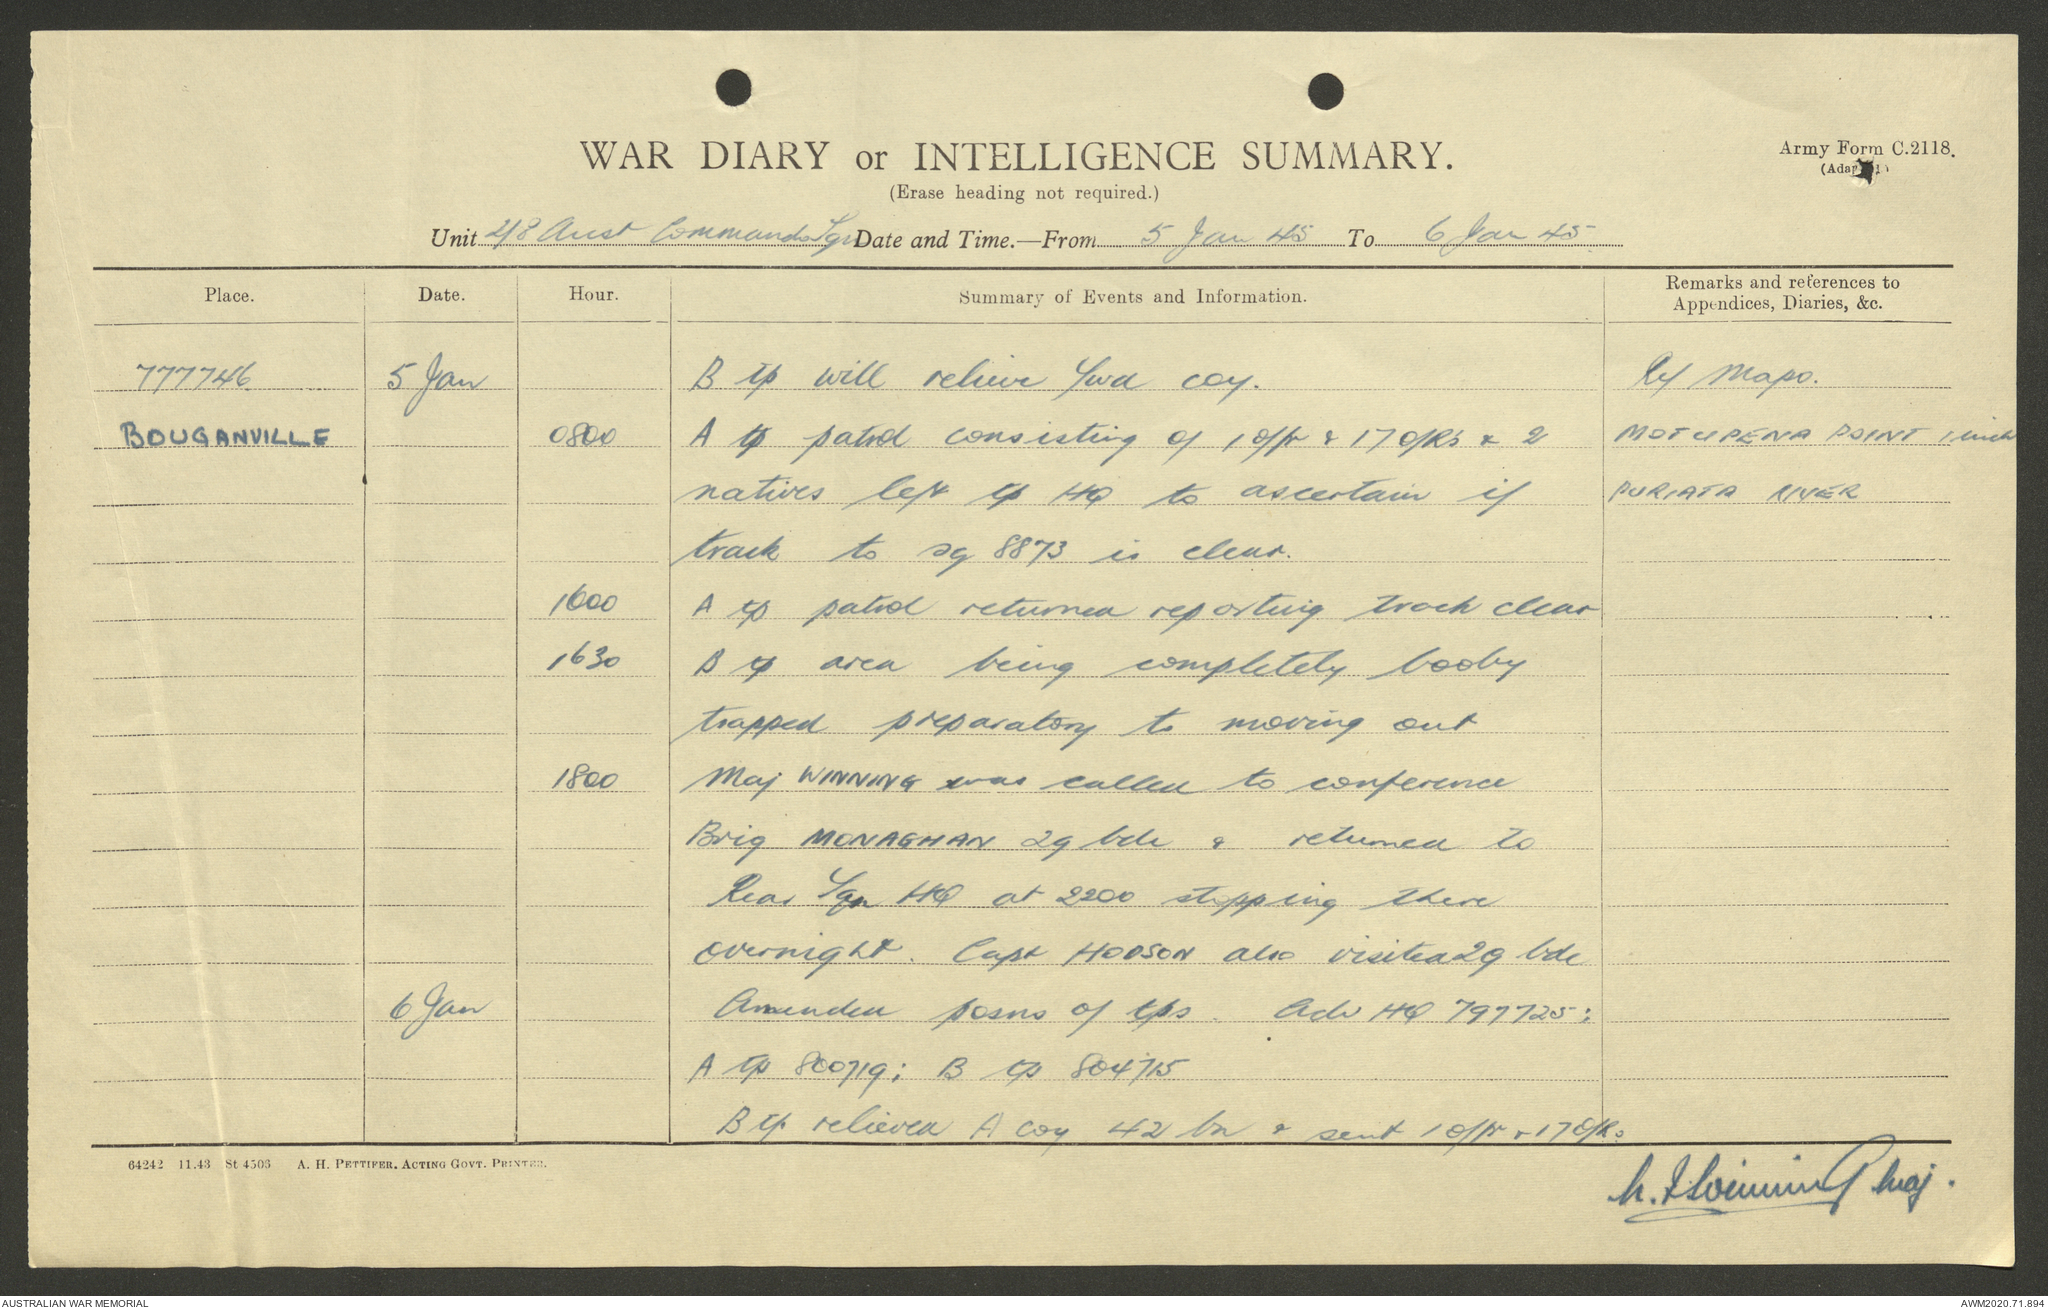 WAR DIARY or INTELLIGENCE SUMMARY.
Army Form C.2118.
(Erase heading not required.)
Unit 2/8 Aust Commando Sqn Date and Time.—From 5 Jan 45 To 6 Jan 45.
Place. Date. Hour. Summary of Events and Information. Remarks and references to Appendices, Diaries, &c.
777746 5 Jan B tp will relieve fwd coy. Ref Maps.
BOUGANVILLE 0800 A tp patrol consisting of 1 offr & 17 o/Rs & 2 MOTUPENA POINT 1 inch
natives left tp HQ to ascertain if PURIATA RIVER
track to sq 8873 is clear.
1600 A tp patrol returned reporting track clear
1630 B tp area being completely booby
trapped preparatory to moving out
1800 Maj WINNING was called to conference
Brig MONAGHAN 29 bde & returned to
Rear Sqn HQ at 2200 stopping there
overnight. Capt HODSON also visited 29 bde
6 Jan Amended posns of tps. Adv HQ 797725;
A tp 800719; B tp 804715
B tp relieved A coy 42 bn & sent 1 offr & 17 o/Rs
64242 11.43 St 4503 A. H. PETTIFER, ACTING GOVT. PRINTER.
Winning Maj.
AUSTRALIAN WAR MEMORIAL AWM2020.71.894